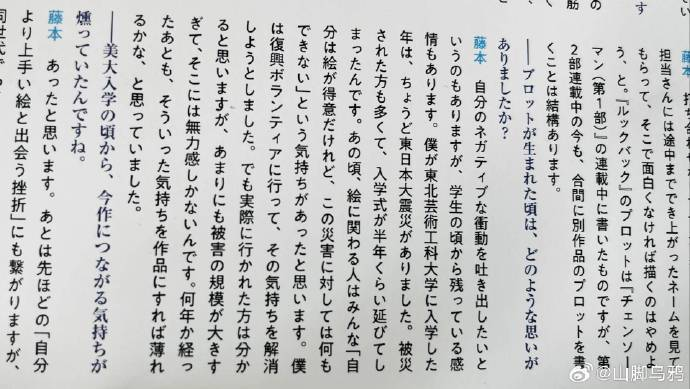 担当さんには途中まででき上がったネームを見て
もらって、そこで面白くなければ描くのはやめよ
う、と。『ルックバック』のプロットは『チェンソー
マン（第1部）』の連載中に書いたものですが、第
2部連載中の今も、合間に別作品のプロットを書
くことは結構あります。
――プロットが生まれた頃は、どのような思いが
ありましたか？
藤本　自分のネガティブな衝動を吐き出したいと
いうのもありますが、学生の頃から残っている感
情もあります。僕が東北芸術工科大学に入学した
年は、ちょうど東日本大震災がありました。被災
された方も多くて、入学式が半年くらい延びてし
まったんです。あの頃、絵に関わる人はみんな「自
分は絵が得意だけれど、この災害に対しては何も
できない」という気持ちがあったと思います。僕
は復興ボランティアに行って、その気持ちを解消
しようとしました。でも実際に行かれた方は分か
ると思いますが、あまりにも被害の規模が大きす
ぎて、そこには無力感しかないんです。何年か経っ
たあとも、そういった気持ちを作品にすれば薄れ
るかな、と思っていました。
――美大入学の頃から、今作につながる気持ちが
燻っていたんですね。
藤本　あったと思います。あとは先ほどの「自分
より上手い絵と出会う挫折」にも繋がりますが、
@山脚乌鸦